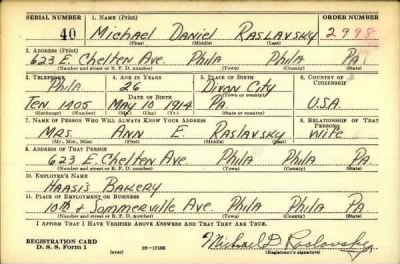 SERIAL NUMBER 1. NAME (Print) ORDER NUMBER
40 Michael Daniel Raslavsky 2998
(First) (Middle) (Last)
2. ADDRESS (Print)
623 E. Chelten Ave. Phila Phila Pa.
(Number and street or R. F. D. number) (Town) (County) (State)
3. TELEPHONE 4. AGE IN YEARS 5. PLACE OF BIRTH 6. COUNTRY OF CITIZENSHIP
Phila 26 Dixon City
DATE OF BIRTH (Town or county)
Ten 1405 May 10 1914 Pa. U.S.A.
(Exchange) (Number) (Mo.) (Day) (Yr.) (State or country)
7. NAME OF PERSON WHO WILL ALWAYS KNOW YOUR ADDRESS 8. RELATIONSHIP OF THAT PERSON
Mrs. Ann E. Raslavsky Wife
(Mr., Mrs., Miss) (First) (Middle) (Last)
9. ADDRESS OF THAT PERSON
623 E. Chelten Ave. Phila Phila Pa
(Number and street or R. F. D. number) (Town) (County) (State)
10. EMPLOYER'S NAME
Haasis Bakery
11. PLACE OF EMPLOYMENT OR BUSINESS
10th & Sommerville Ave. Phila Phila Pa
(Number and street or R. F. D. number) (Town) (County) (State)
I AFFIRM THAT I HAVE VERIFIED ABOVE ANSWERS AND THAT THEY ARE TRUE.
REGISTRATION CARD
D. S. S. Form 1 (over) 16—17105 Michael D Raslavsky
(Registrant's signature)